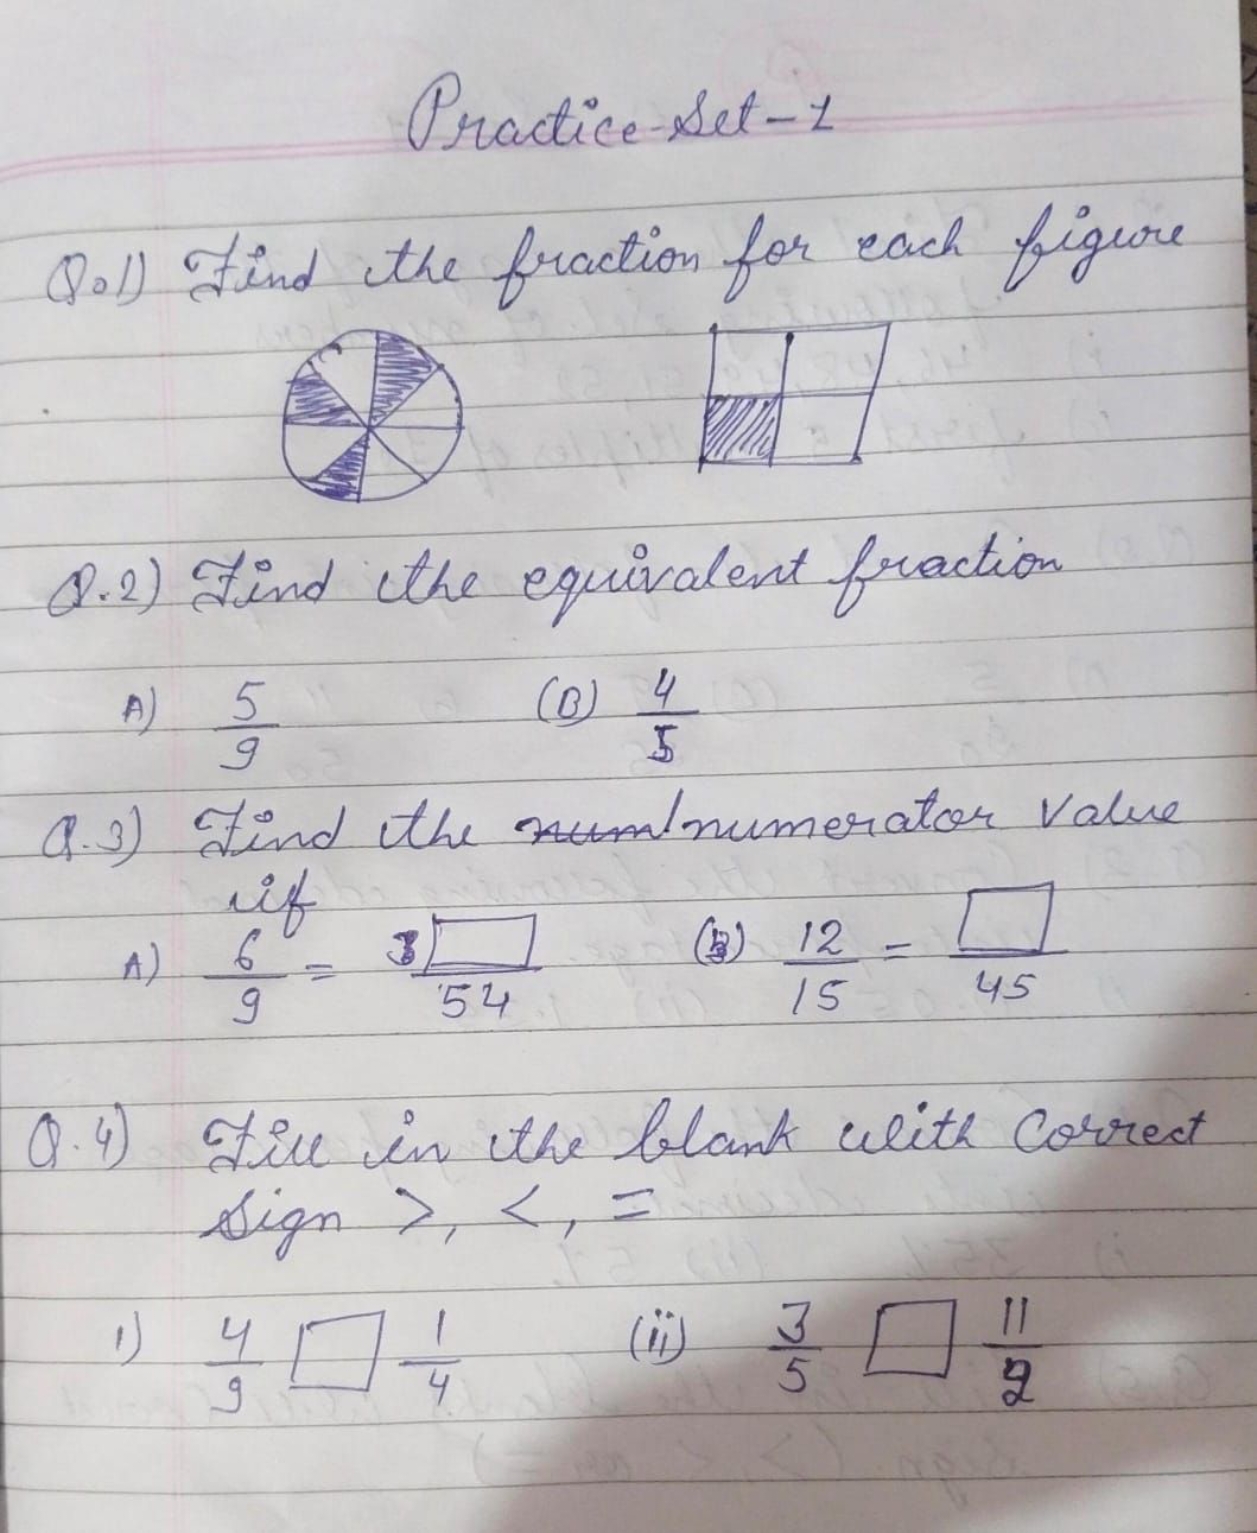 Practice-Set-1
Q.1) Find the fraction for each figure
Q.2) Find the equivalent fraction
A) 5/9 (B) 4/5
Q.3) Find the numerator value
if
A) 6/9 = □/54 (B) 12/15 = □/45
Q.4) Fill in the blank with correct
sign >, <, =
1) 4/9 □ 1/4 (ii) 3/5 □ 11/2